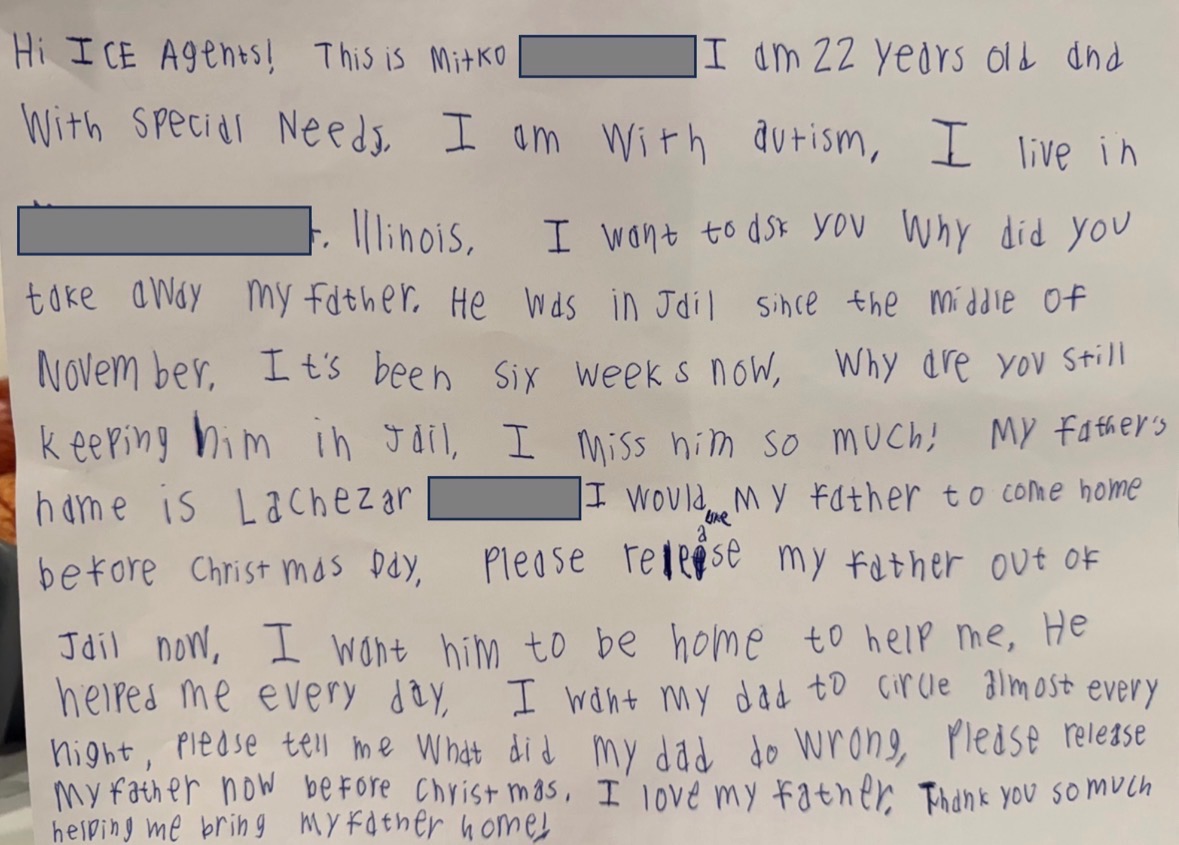 Hi ICE Agents! This is Mitko I am 22 years old and
With special Needs. I am With autism, I live in
Illinois, I want to ask you Why did you
take away my father. He was in Jail since the middle of
November. It's been six weeks now, Why are you still
keeping him in Jail, I Miss him so much! My father's
name is Lachezar I Would like My father to come home
before Christmas Day, Please release my father out of
Jail now, I want him to be home to help me, He
helped me every day, I want my dad to circle almost every
night, Please tell me What did my dad do Wrong, Please release
My father now before Christmas. I love my father. Thank you so much
helping me bring my father home!